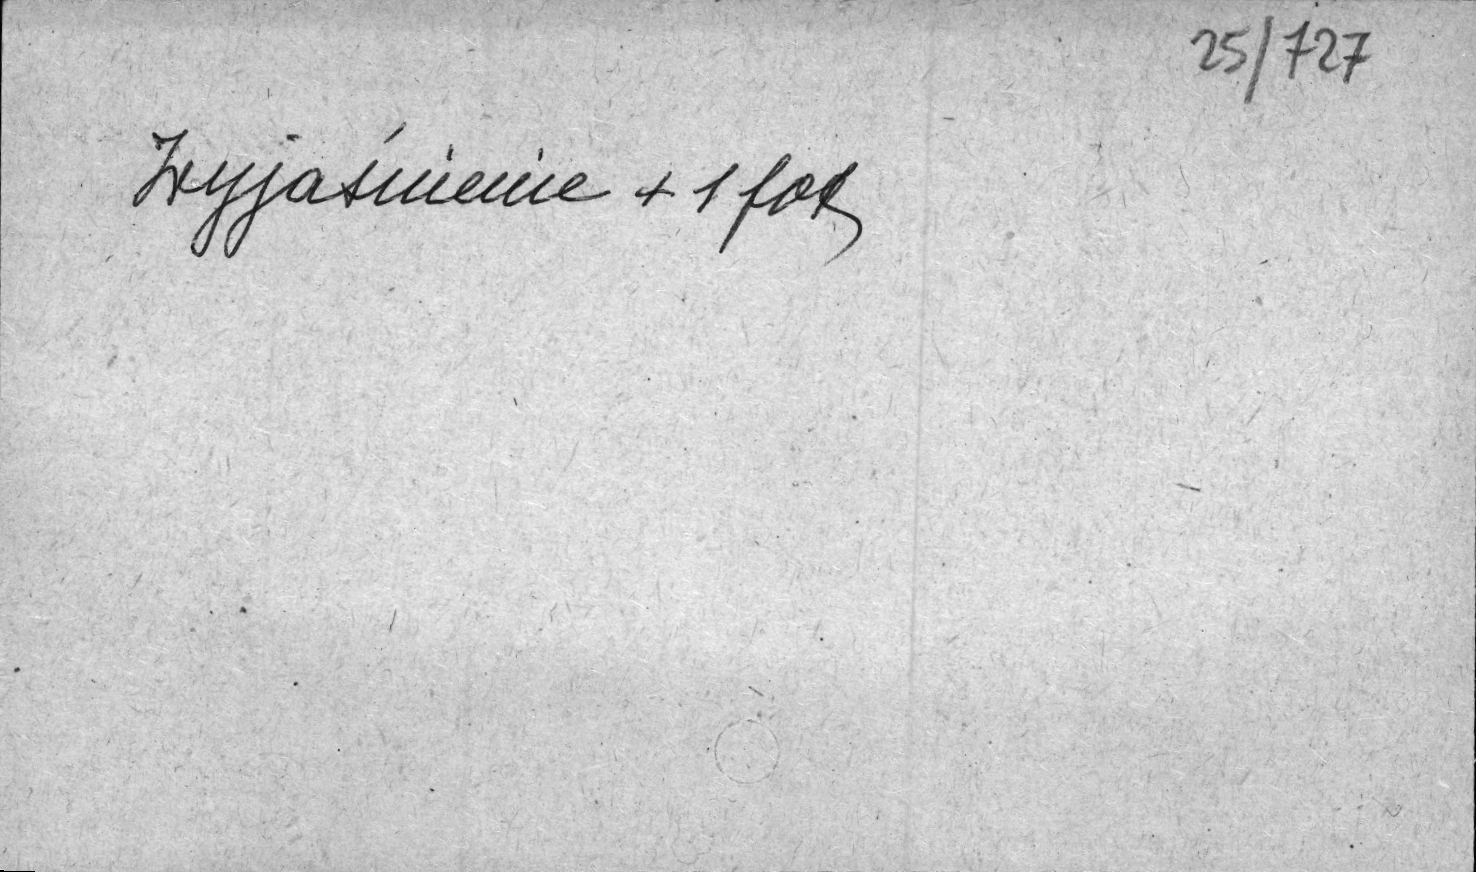 25/727
Wyjaśnienie + 1 fot